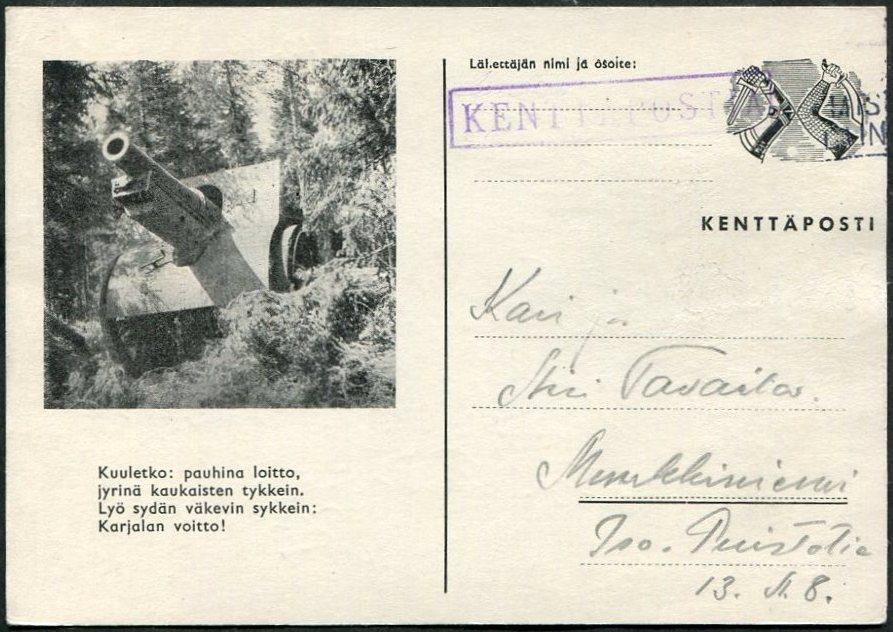 Lähettäjän nimi ja osoite:
KENTTÄPOSTIA
KENTTÄPOSTI
Kari ja
Tavaila.
Munkkiniemi
Iso. Puistotie
13. A. 8.
Kuuletko: pauhina loitto,
jyrinä kaukaisten tykkein.
Lyö sydän väkevin sykkein:
Karjalan voitto!